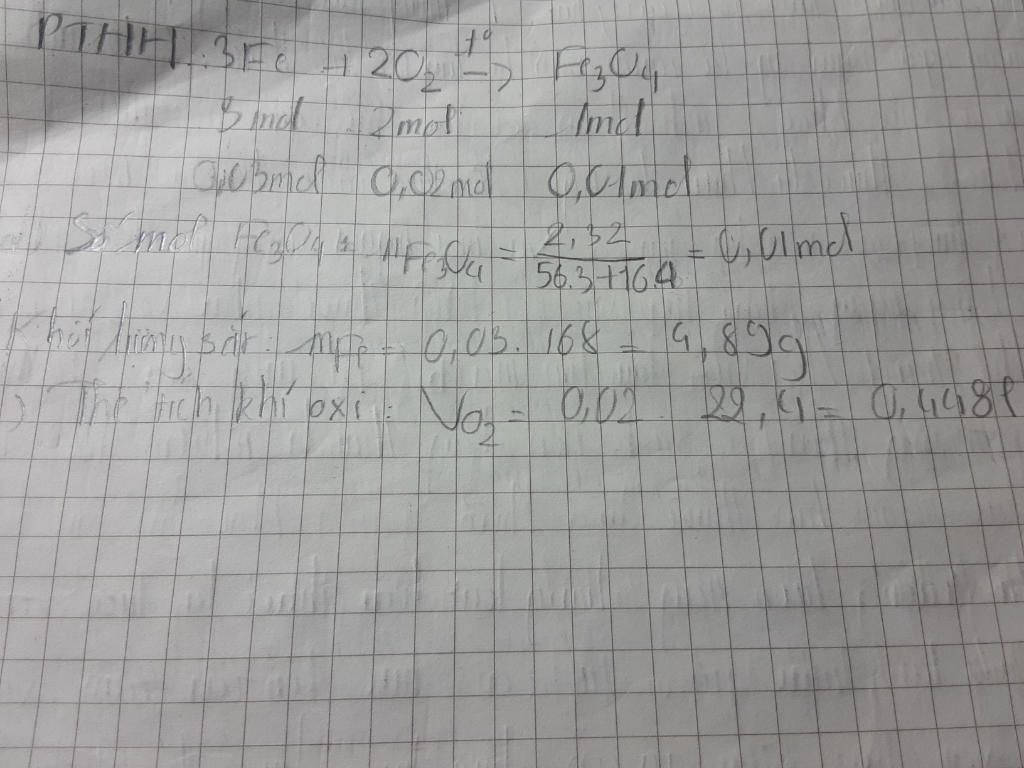 PTHH: 3Fe + 2O₂ t°→ Fe₃O₄
3mol 2mol 1mol
0,03mol 0,02mol 0,01mol
Số mol Fe₃O₄: nFe₃O₄ = 2,32 / 56.3+16.4 = 0,01mol
Khối lượng sắt: mFe = 0,03. 168 = 4,89g
) Thể tích khí oxi: VO₂ = 0,02. 22,4 = 0,448l